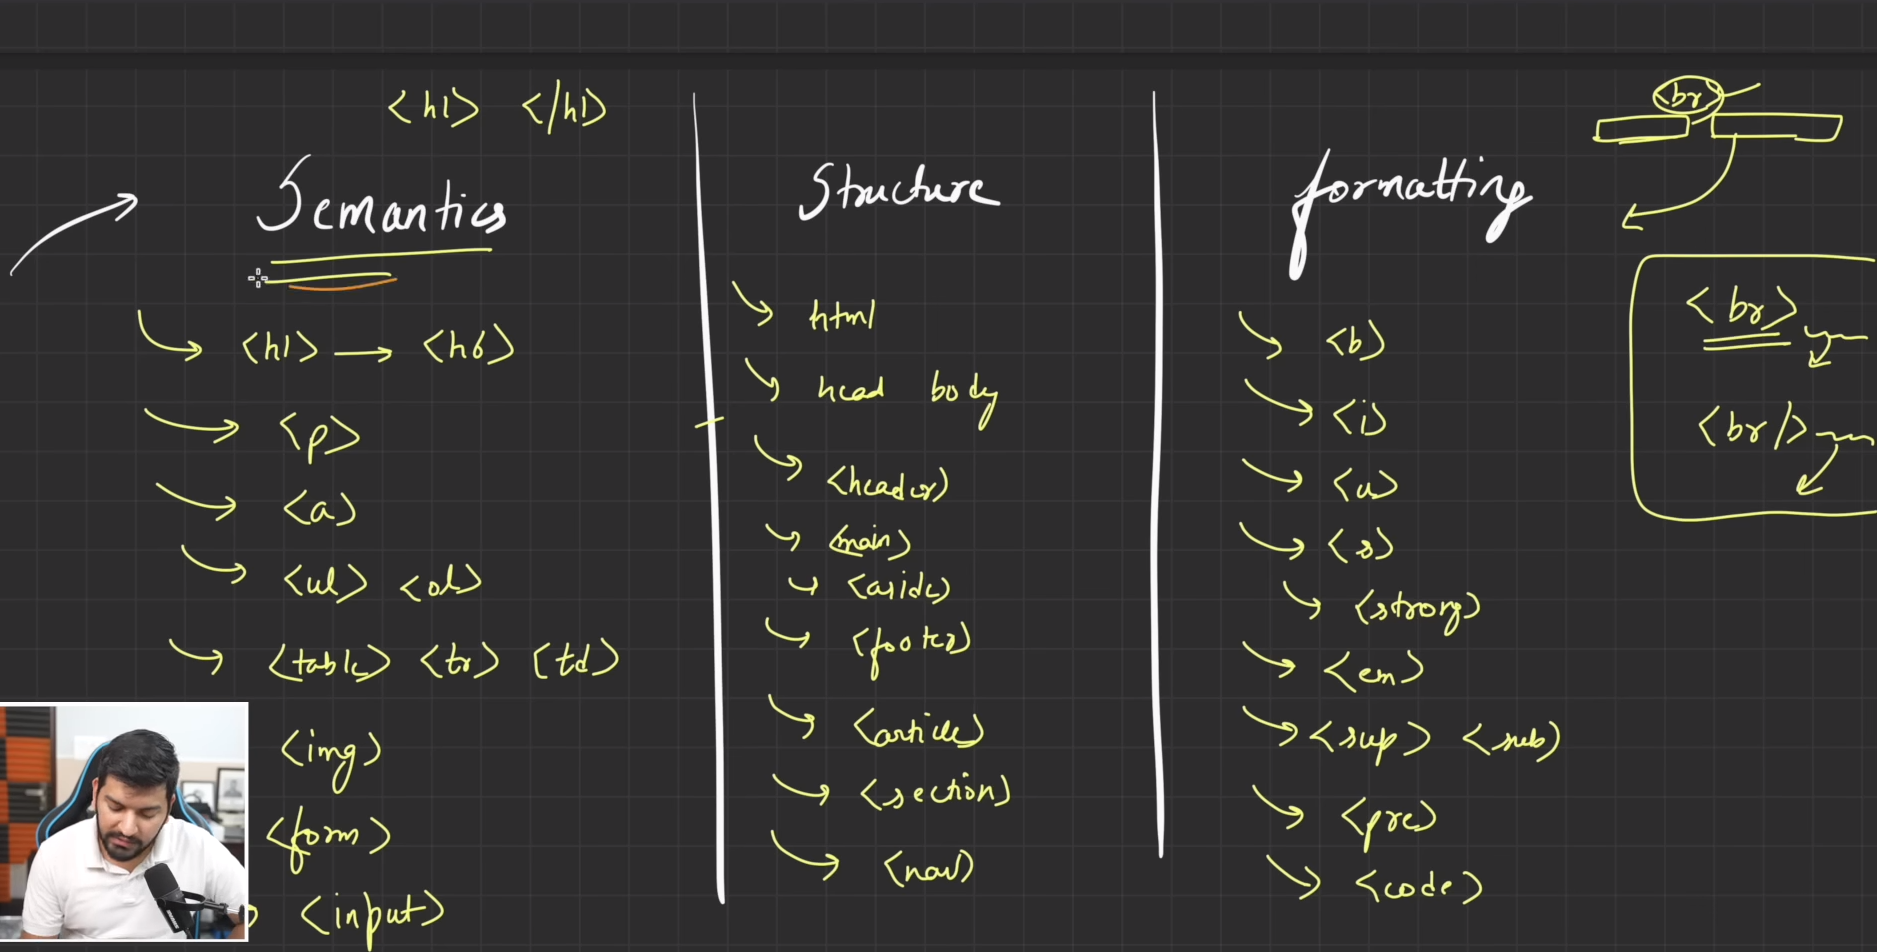 <h1> </h1>
Semantics
<h1> → <h6>
<p>
<a>
<ul> <ol>
<table> <tr> [td>
<img>
<form>
<input>
Structure
html
head body
<header>
<main>
<aside>
<footer>
<article>
<section>
<nav>
formatting
<b>
<i>
<u>
<s>
<strong>
<em>
<sup> <sub>
<pre>
<code>
<br>
<br>
<br/>